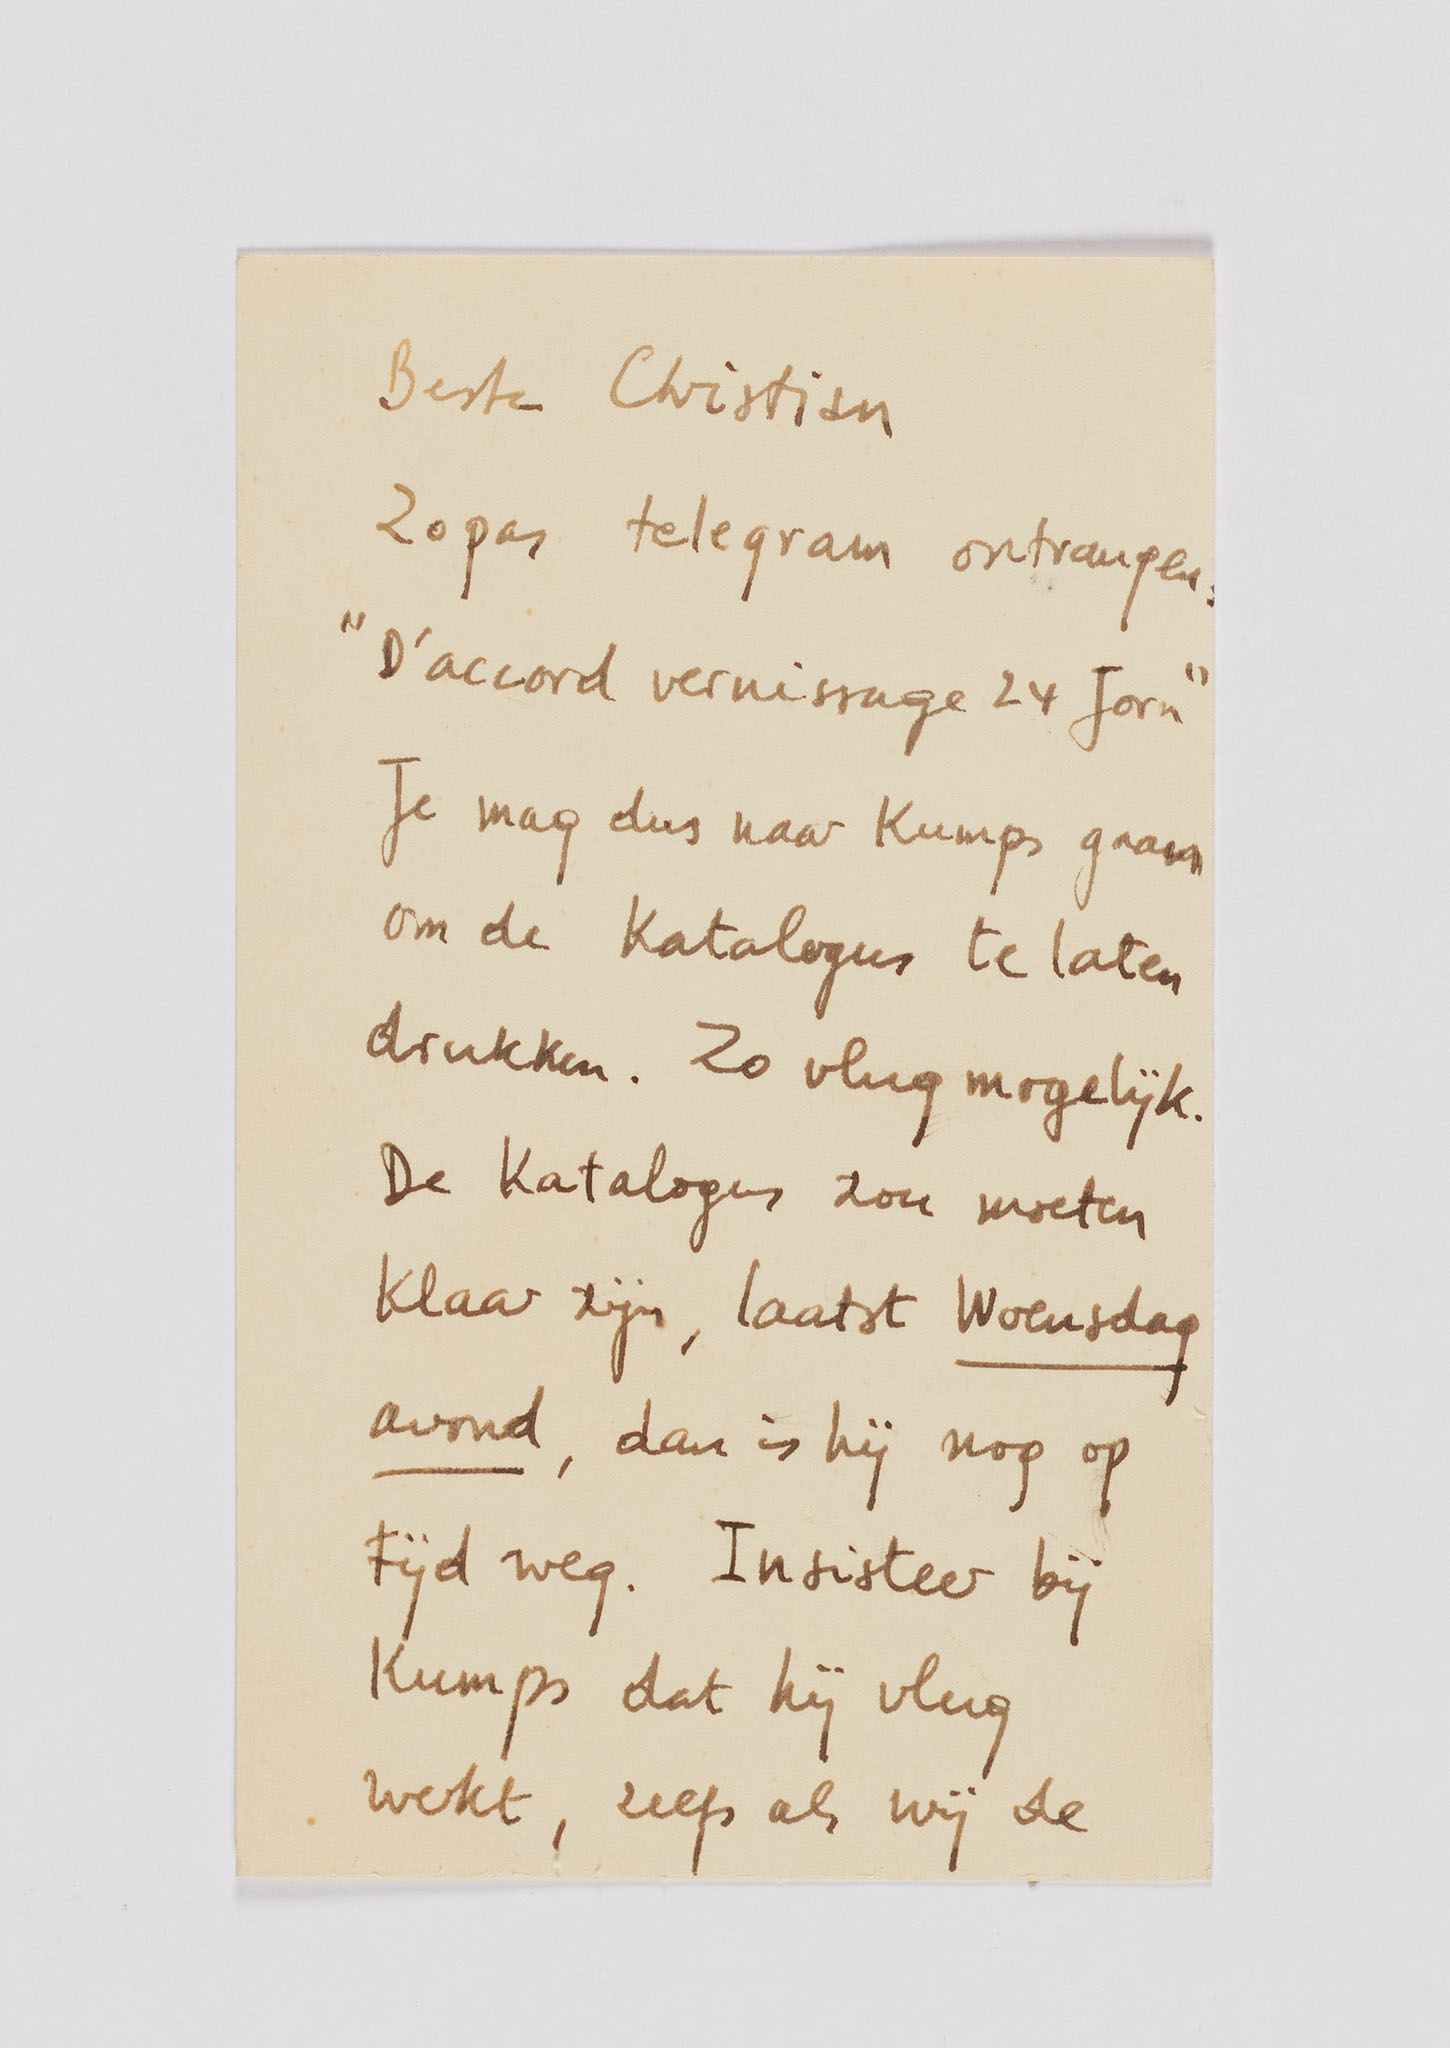 Beste Christian
Zopas telegram ontvangen:
"D'accord vernissage 24 Jorn"
Je mag dus naar Kumps gaan
om de Katalogus te laten
drukken. Zo vlug mogelijk.
De Katalogus zou moeten
Klaar zijn, laatst Woensdag
avond, dan is hij nog op
tijd weg. Insisteer bij
Kumps dat hij vlug
werkt, zelfs als wij de